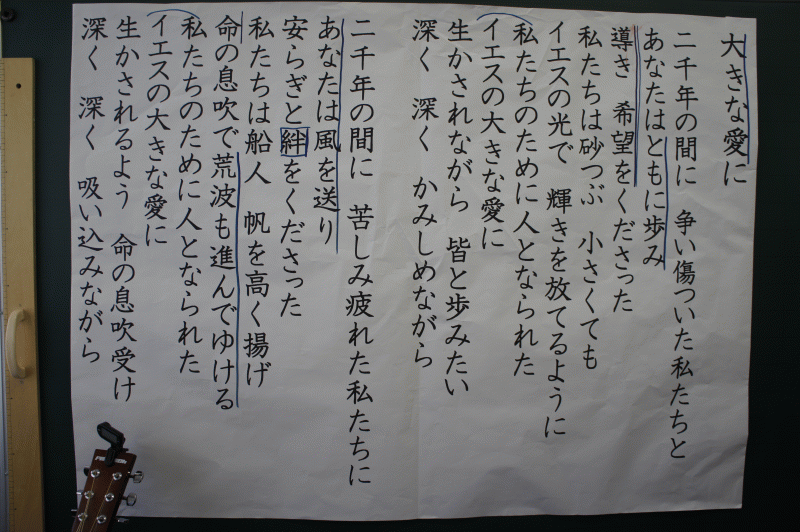 大きな愛に
二千年の間に 争い傷ついた私たちと
あなたはともに歩み
導き 希望をくださった
私たちは砂つぶ 小さくても
イエスの光で 輝きを放てるように
私たちのために人となられた
イエスの大きな愛に
生かされながら 皆と歩みたい
深く 深く かみしめながら
二千年の間に 苦しみ疲れた私たちに
あなたは風を送り
安らぎと絆をくださった
私たちは船人 帆を高く揚げ
命の息吹で荒波も進んでゆける
私たちのために人となられた
イエスの大きな愛に
生かされるよう 命の息吹受け
深く 深く 吸い込みながら